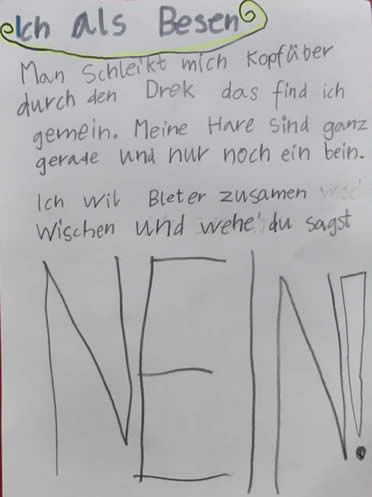 Ich als Besen
Man schleikt mich Kopfüber
durch den Drek das find ich
gemein. Meine Hare sind ganz
gerade und nur noch ein bein.
Ich wil Bleter zusamen
wischen und wehe du sagst
NEIN!